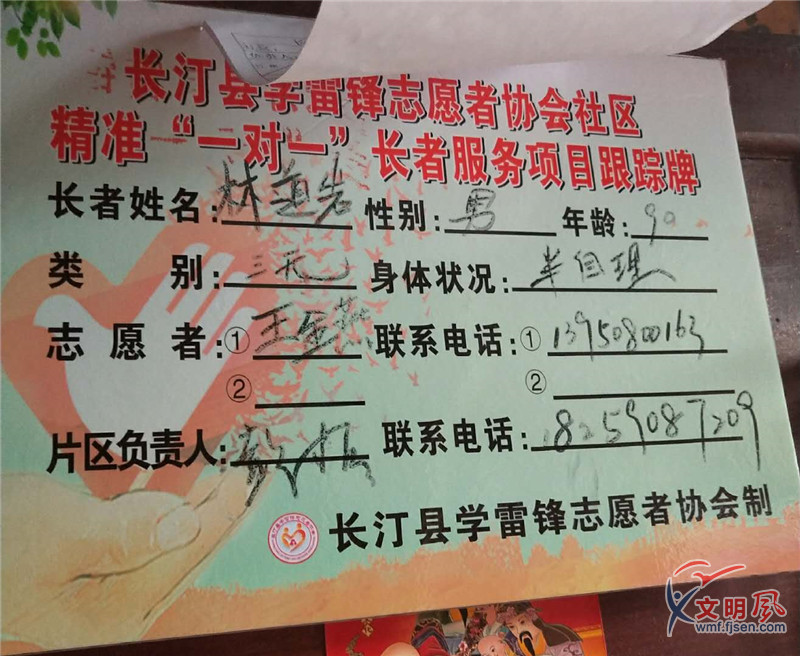 长汀县学雷锋志愿者协会社区
精准“一对一”长者服务项目跟踪牌
长者姓名:林道岩 性别:男 年龄:90
类别:三无 身体状况:半自理
志愿者:①王金燕 联系电话:①13950800163
② ②
片区负责人: 联系电话:18259087209
长汀县学雷锋志愿者协会制
文明风
wmf.fjsen.com